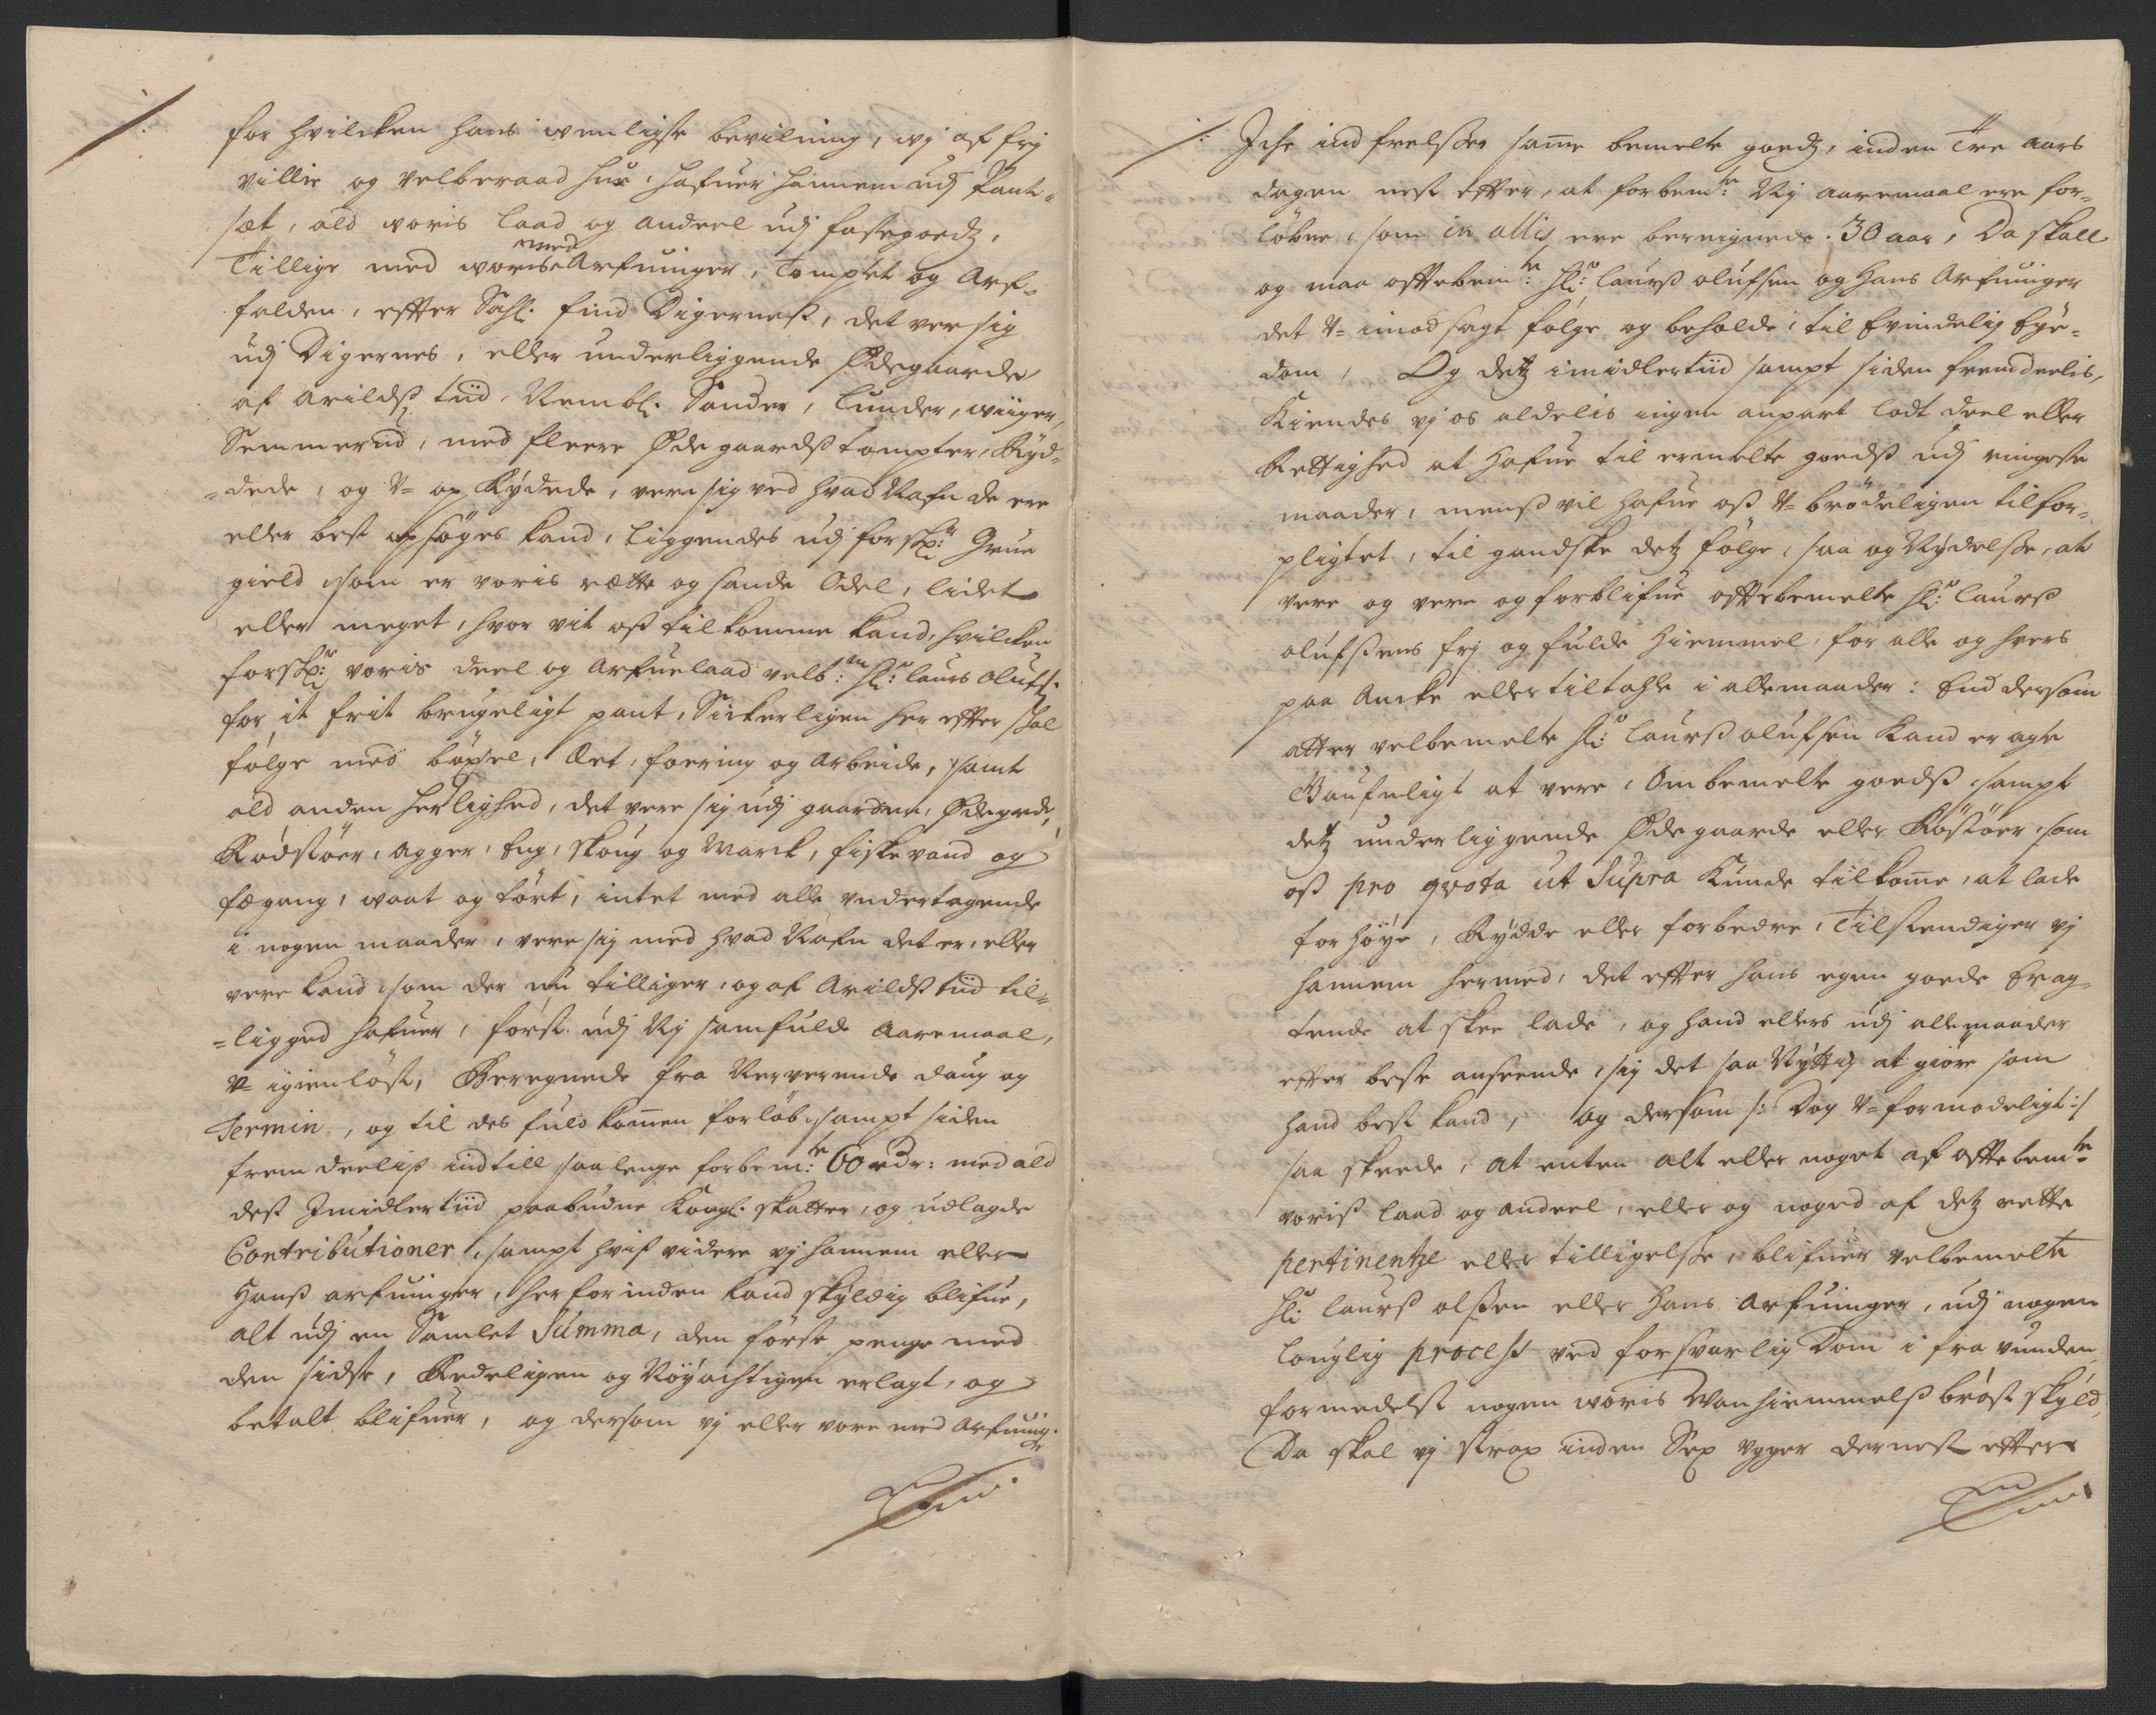 for hvilcken hans wenligste bevilning, wj af frj
villie og velberaad hue, hafuer hannem udj Pant-
sæt, ald woris laad og andeel udj fastegoedz,
Tillige med woris med Arfuinger, Tomptet og Arf-
falden, effter Sahl. find Digerness, det vere sig
udj Digernes, eller underliggende Ødegaarde
af arildss tiid, Nembl. Sander, Lunder, wiiger,
Semmerud, med fleere Ødegaardss tompter, Ryd-
=dede, og V= op Rydede, vere sig ved hvad Nafn de ere
eller best opsøges kand, liggendes udj forskr: Grue
gield som er voris rætte og sande Odel, lidet
eller meget, hvor vit oss tilkomme kand, hvilcken
forskr: voris deel og Arfuelaad velb: Hr: Laurs Olufs:
for it frit brugeligt pant, Sickerligen her effter skal
følge med bøxsel, Læt, foering og Arbeide, samt
ald anden herlighed, det vere sig udj gaarden, Ødegrde,
Rødstøer, Agger, Eng, skoug og Marck, fiskevand og
fægang, waat og tørt, intet med alle undertagende
i nogen maader, vere sig med hvad Nafn det er, eller
vere kand som der nu tilliger, og af Arildss tiid til-
=ligged hafuer, først udj Nj samfulde aaremaal,
V= igienløst, Beregnede fra Nerverende daug og
Termin, og til des fuldkomen forløb, sampt siden
fremdeeliss indtill saalenge forbem:te 60 rdr: med ald
dess Imidlertiid paabudne Kongl. skatter, og udlagde
Contributioner, sampt hvis videre vj hannem eller
Hanss arfuinger, her forinden kand skyldig blifue,
alt udj en Samlet Summa, den første penge med
den sidste, Redeligen og Nøyachtigen erlagt, og
betalt blifuer, og dersom vj eller vore med Arfuing:
Iche indfrelsser same bemelte goedz, inden Tre aars
dagen nest effter, at forbem:te Nj aaremaal ere for-
løbne, som in allis ere beregnede 30 aar, Da skall
og maa offtebem:te Hr: Laurss olufsen og Hans Arfuinger
det V= imodsagt følge og beholde, til Evindelig Eye-
dom, Og detz imidlertiid sampt siden fremdeelis,
Kiendes vj os aldelis ingen anpart lodt deel eller
Rettighed at hafue til ermelte goedss udj ringeste
maader, menss vil hafue oss V= brødeligen tilfor-
pligtet, til gandske detz følge, saa og Nydelsse, at
vere og vere og forblifue offtebemelte Hr: Laurss
olufssens frj og fulde Hiemmel, for alle og hvers
paa Ancke eller tiltahle i alle maader: End dersom
atter velbemelte Hr: Laurss olufsen Kand eragte
Gaufnligt at vere, Om bemelte goedss, sampt
detz underliggende Ødegaarde eller Røstøer, som
oss pro qvota ut Supra Kunde tilkome, at lade
forhøye, Rydde eller forbedre, Tilstendiger vj
hannem hermed, det effter hans egen goede Erag-
tende at skee lade, og hand ellers udj alle maader
effter beste anseende, sig det saa Nyttig at giøre som
hand best kand, og dersom /: Dog V= formodeligt :/
saa skeede, at enten alt eller noget af offtebemte
voriss laad og andeel, eller og noged af detz rette
pertinentze eller tilligelsse, blifuer velbemelte
Hr: Laurss olssen eller Hans Arfuinger, udj nogen
louglig process ved forsvarlig Dom i fra vunden
formedelst nogen woris Wanhiemmelss brøst skyld,
Da skal vj strax inden Sex Uger dernest effter